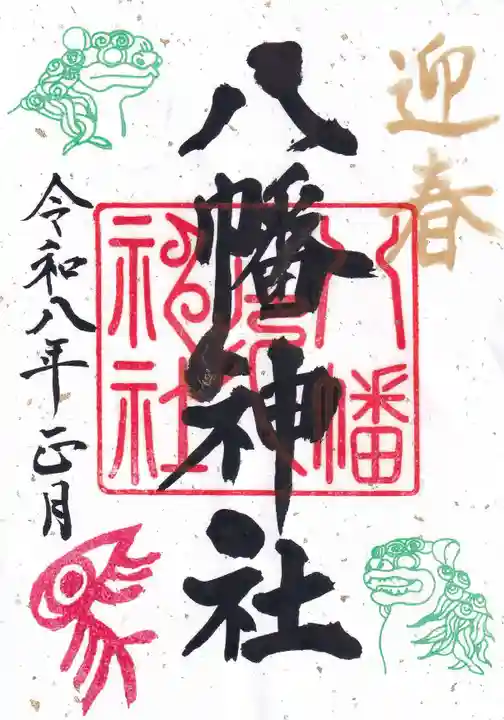 迎春
八幡神社
令和八年正月
八幡
神社